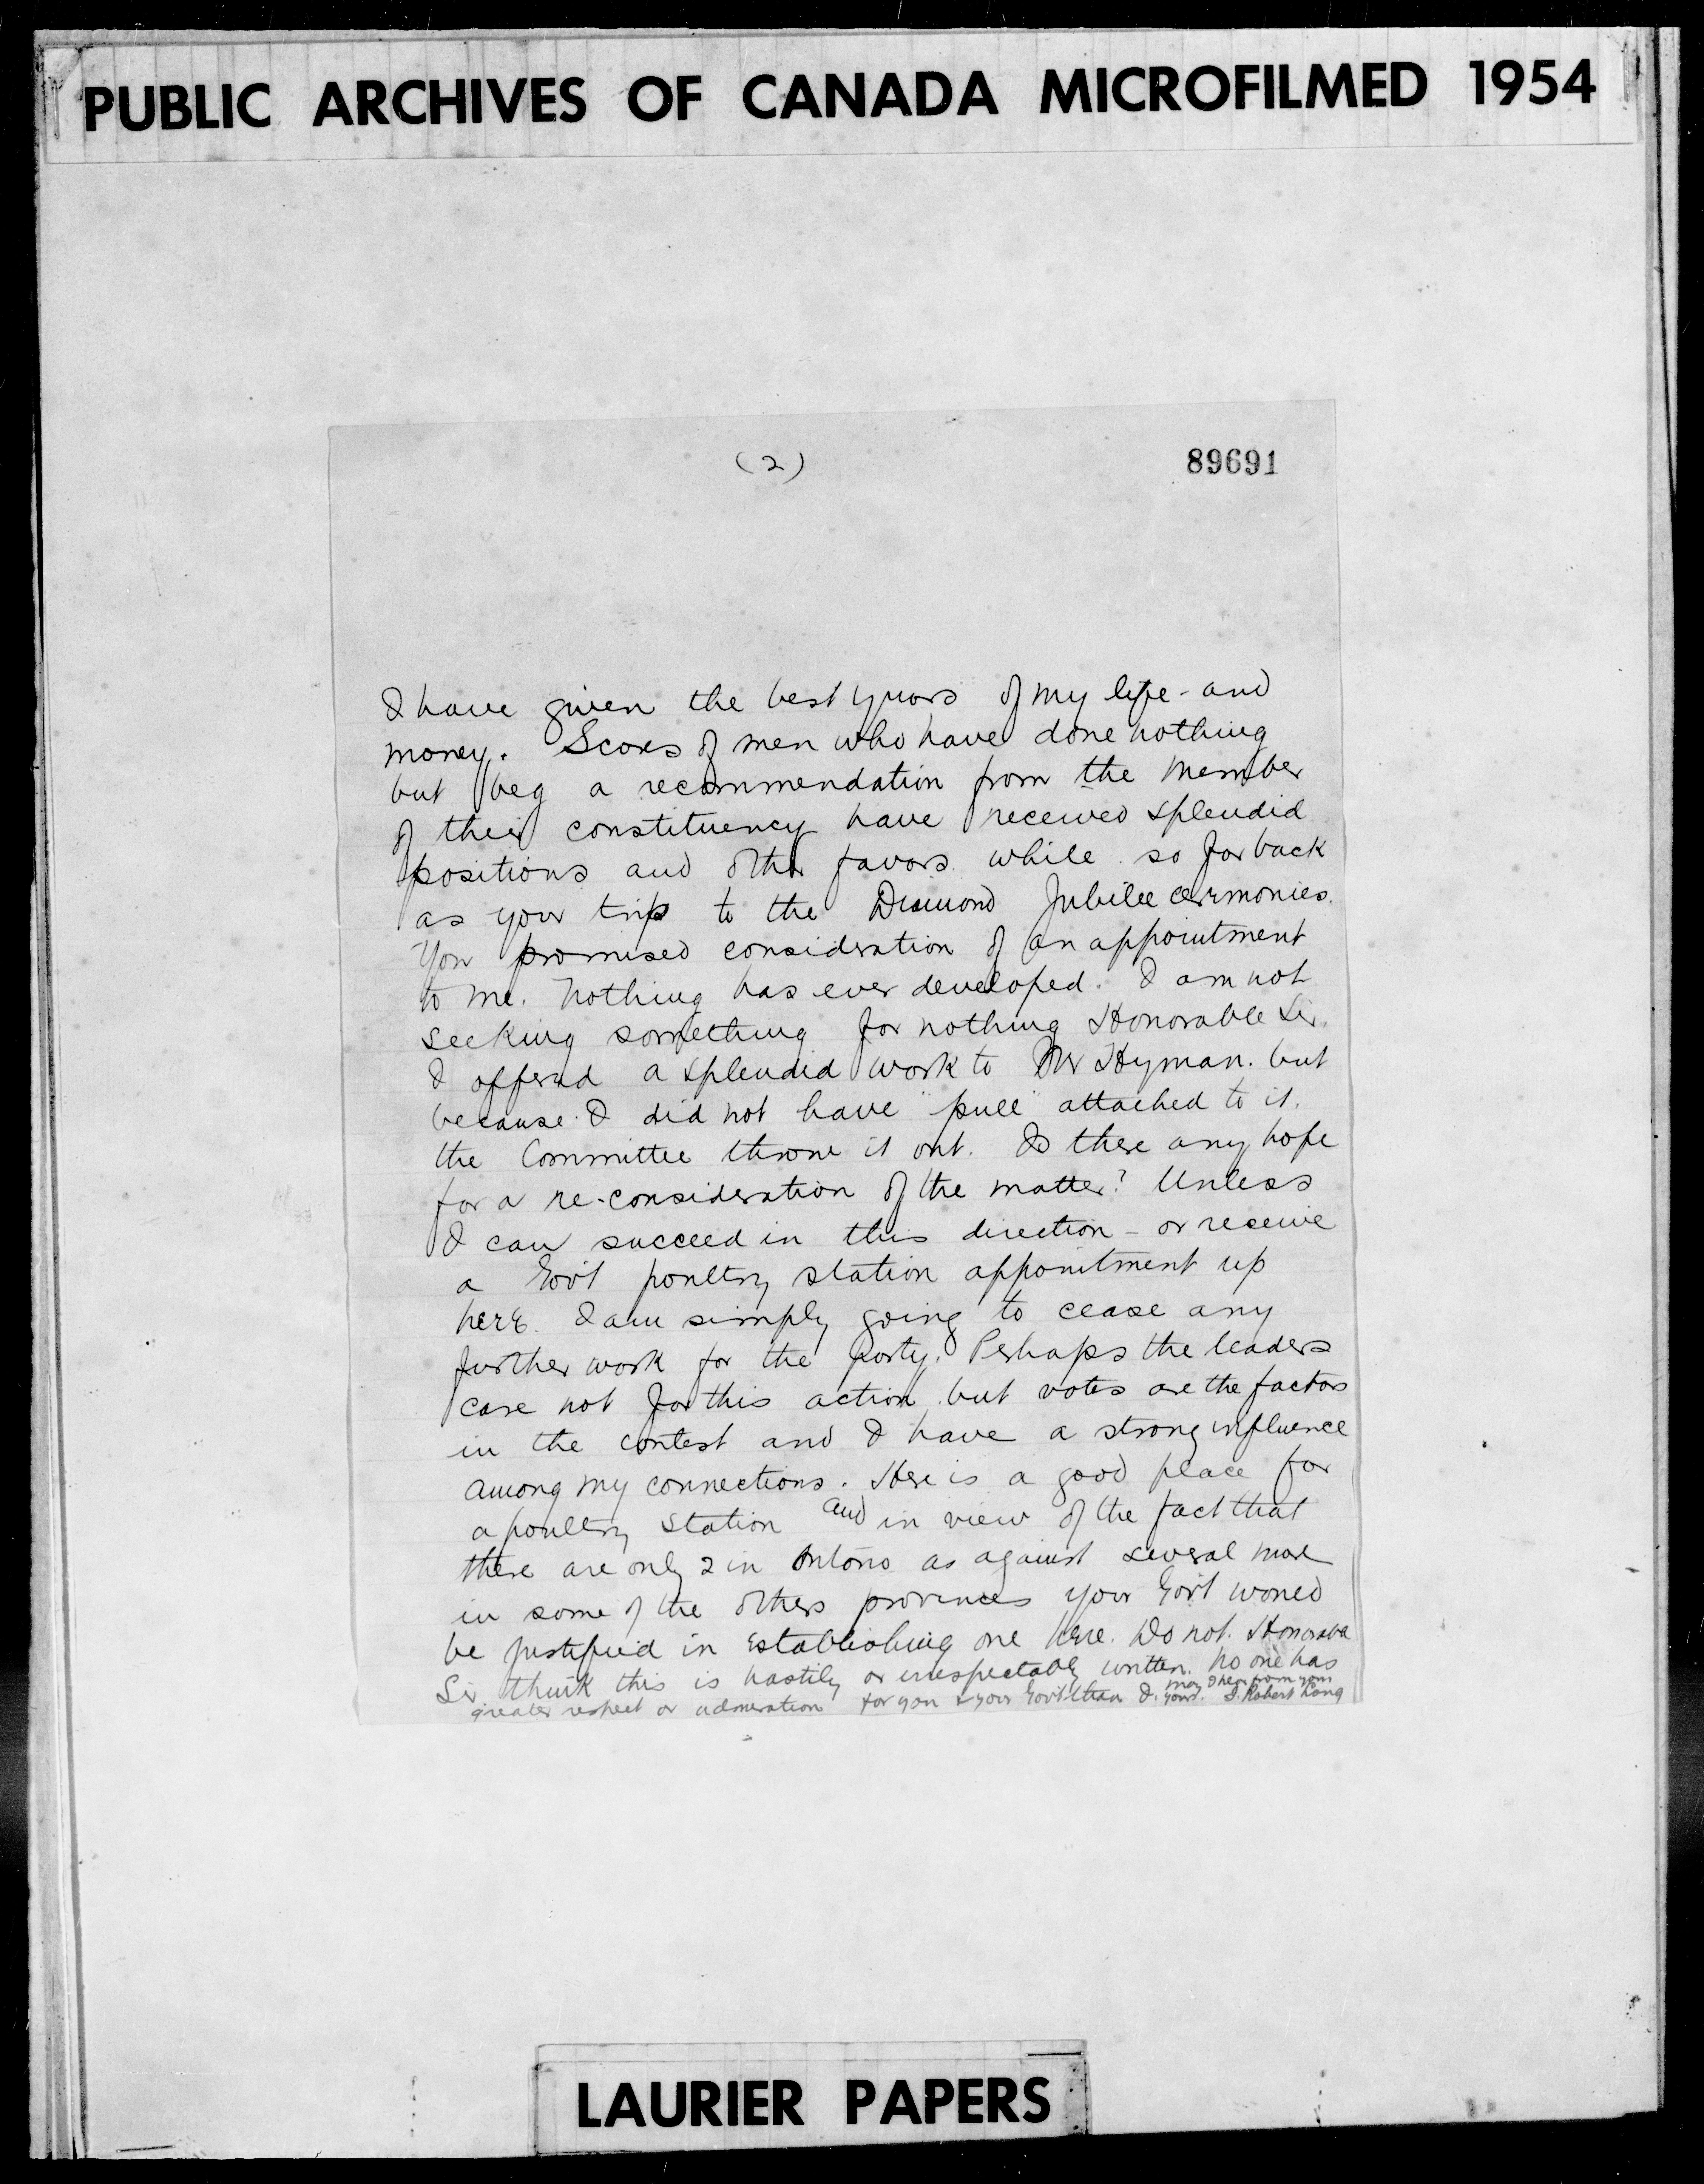 PUBLIC ARCHIVES OF CANADA MICROFILMED 1954
(2)
89691
I have given the best years of my life - and
money. Scores of men who have done nothing
but beg a recommendation from the Member
of their constituency have received splendid
positions and other favors while so far back
as your trip to the Diamond Jubilee ceremonies.
You promised consideration of an appointment
to me. Nothing has ever developed. I am not
seeking something for nothing Honorable Sir.
I offered a splendid work to Mr Hyman. but
because I did not have "pull" attached to it.
the Committee throw it out. Is there any hope
for a re-consideration of the matter? Unless
I can succeed in this direction - or receive
a Gov't poultry station appointment up
here. I am simply going to cease any
further work for the party. Perhaps the leaders
care not for this action but votes are the factors
in the contest and I have a strong influence
among my connections. Here is a good place for
a poultry station and in view of the fact that
there are only 2 in Ontario as against several more
in some of the others provinces your Gov't would
be justified in establishing one here. Do not. Honorable
Sir think this is hastily or irrespectably written. No one has
greater respect or admiration for you & your Gov't than I. may I hear from you
Yours. J. Robert Long
LAURIER PAPERS